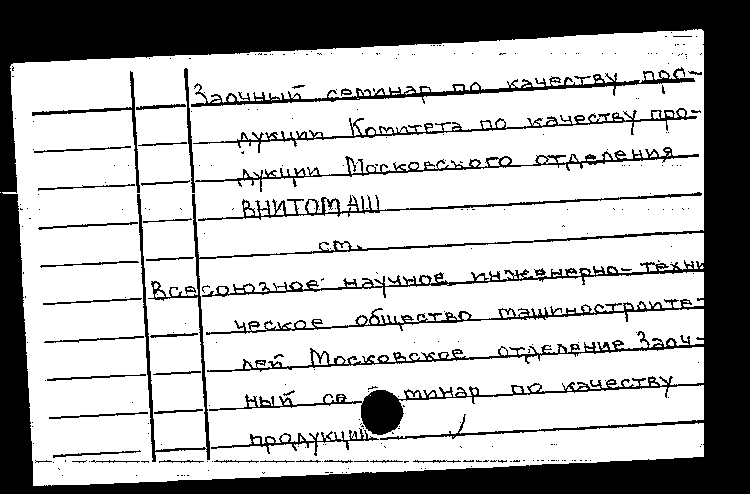 Заочный семинар по качеству про-
дукции Комитета по качеству про-
дукции Московского отделения
ВНИТОМАШ
см.
Всесоюзное научное инженерно-техни
ческое общество машиностроите-
лей. Московское отделение Заоч-
ный семинар по качеству
продукции